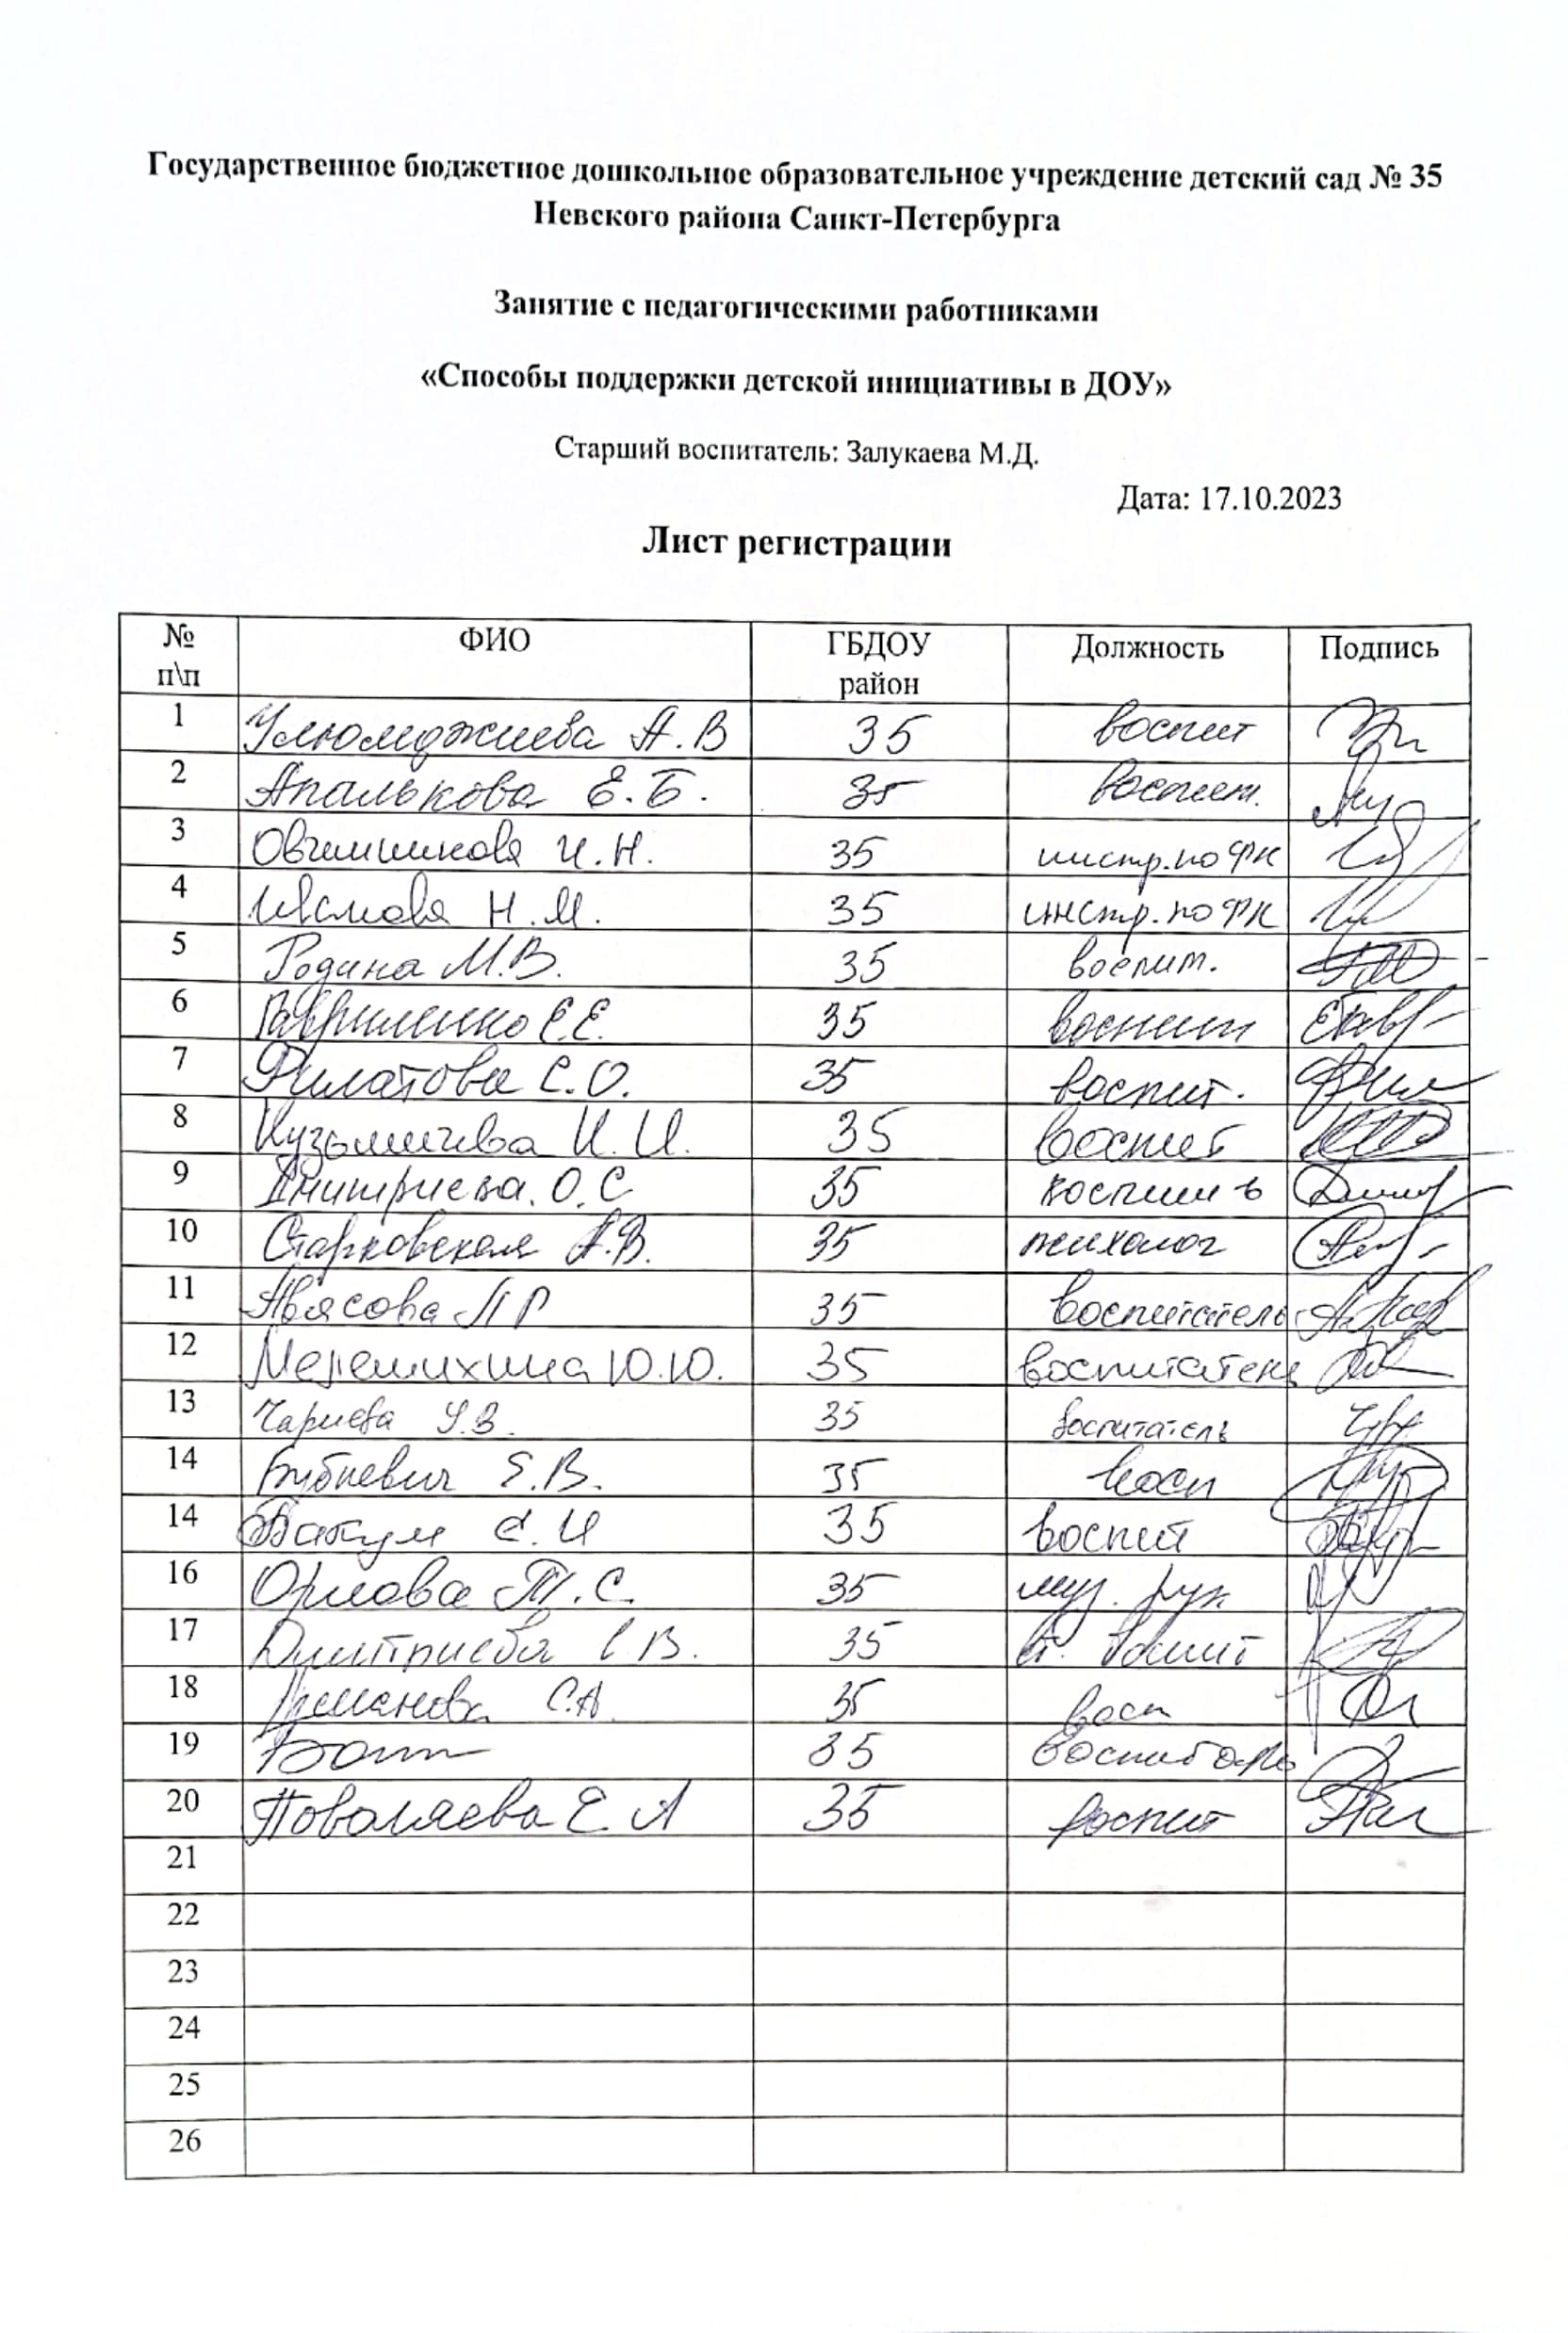 Государственное бюджетное дошкольное образовательное учреждение детский сад № 35
Невского района Санкт-Петербурга
Занятие с педагогическими работниками
«Способы поддержки детской инициативы в ДОУ»
Старший воспитатель: Залукаева М.Д.
Дата: 17.10.2023
Лист регистрации
№ п\п ФИО ГБДОУ район Должность Подпись
1 Улюмджиева А.В 35 воспит
2 Апалькова Е.Б. 35 воспит.
3 Овчинникова И.Н. 35 инстр.по ФК
4 Н.М. 35 инстр.по ФК
5 Родина М.В. 35 воспит.
6 Гавриленко Е.Е. 35 воспит
7 Филатова С.О. 35 воспит.
8 Кузьмичева И.И. 35 воспит
9 Дмитриева.О.С 35
10 Старковская А.В. 35 психолог
11 Авясова 35 воспитатель
12 Мерешихина Ю.Ю. 35 воспитатель
13 Чариева У.З. 35 воспитатель
14 Бубневич Е.В. 35 восп
14 Бакум 35 воспит
16 Орлова Т.С. 35 муз. рук
17 Дмитриева В. 35 ст.
18 С.А. 35 восп
19 35
20 Поваляева Е А 35 воспит
21
22
23
24
25
26